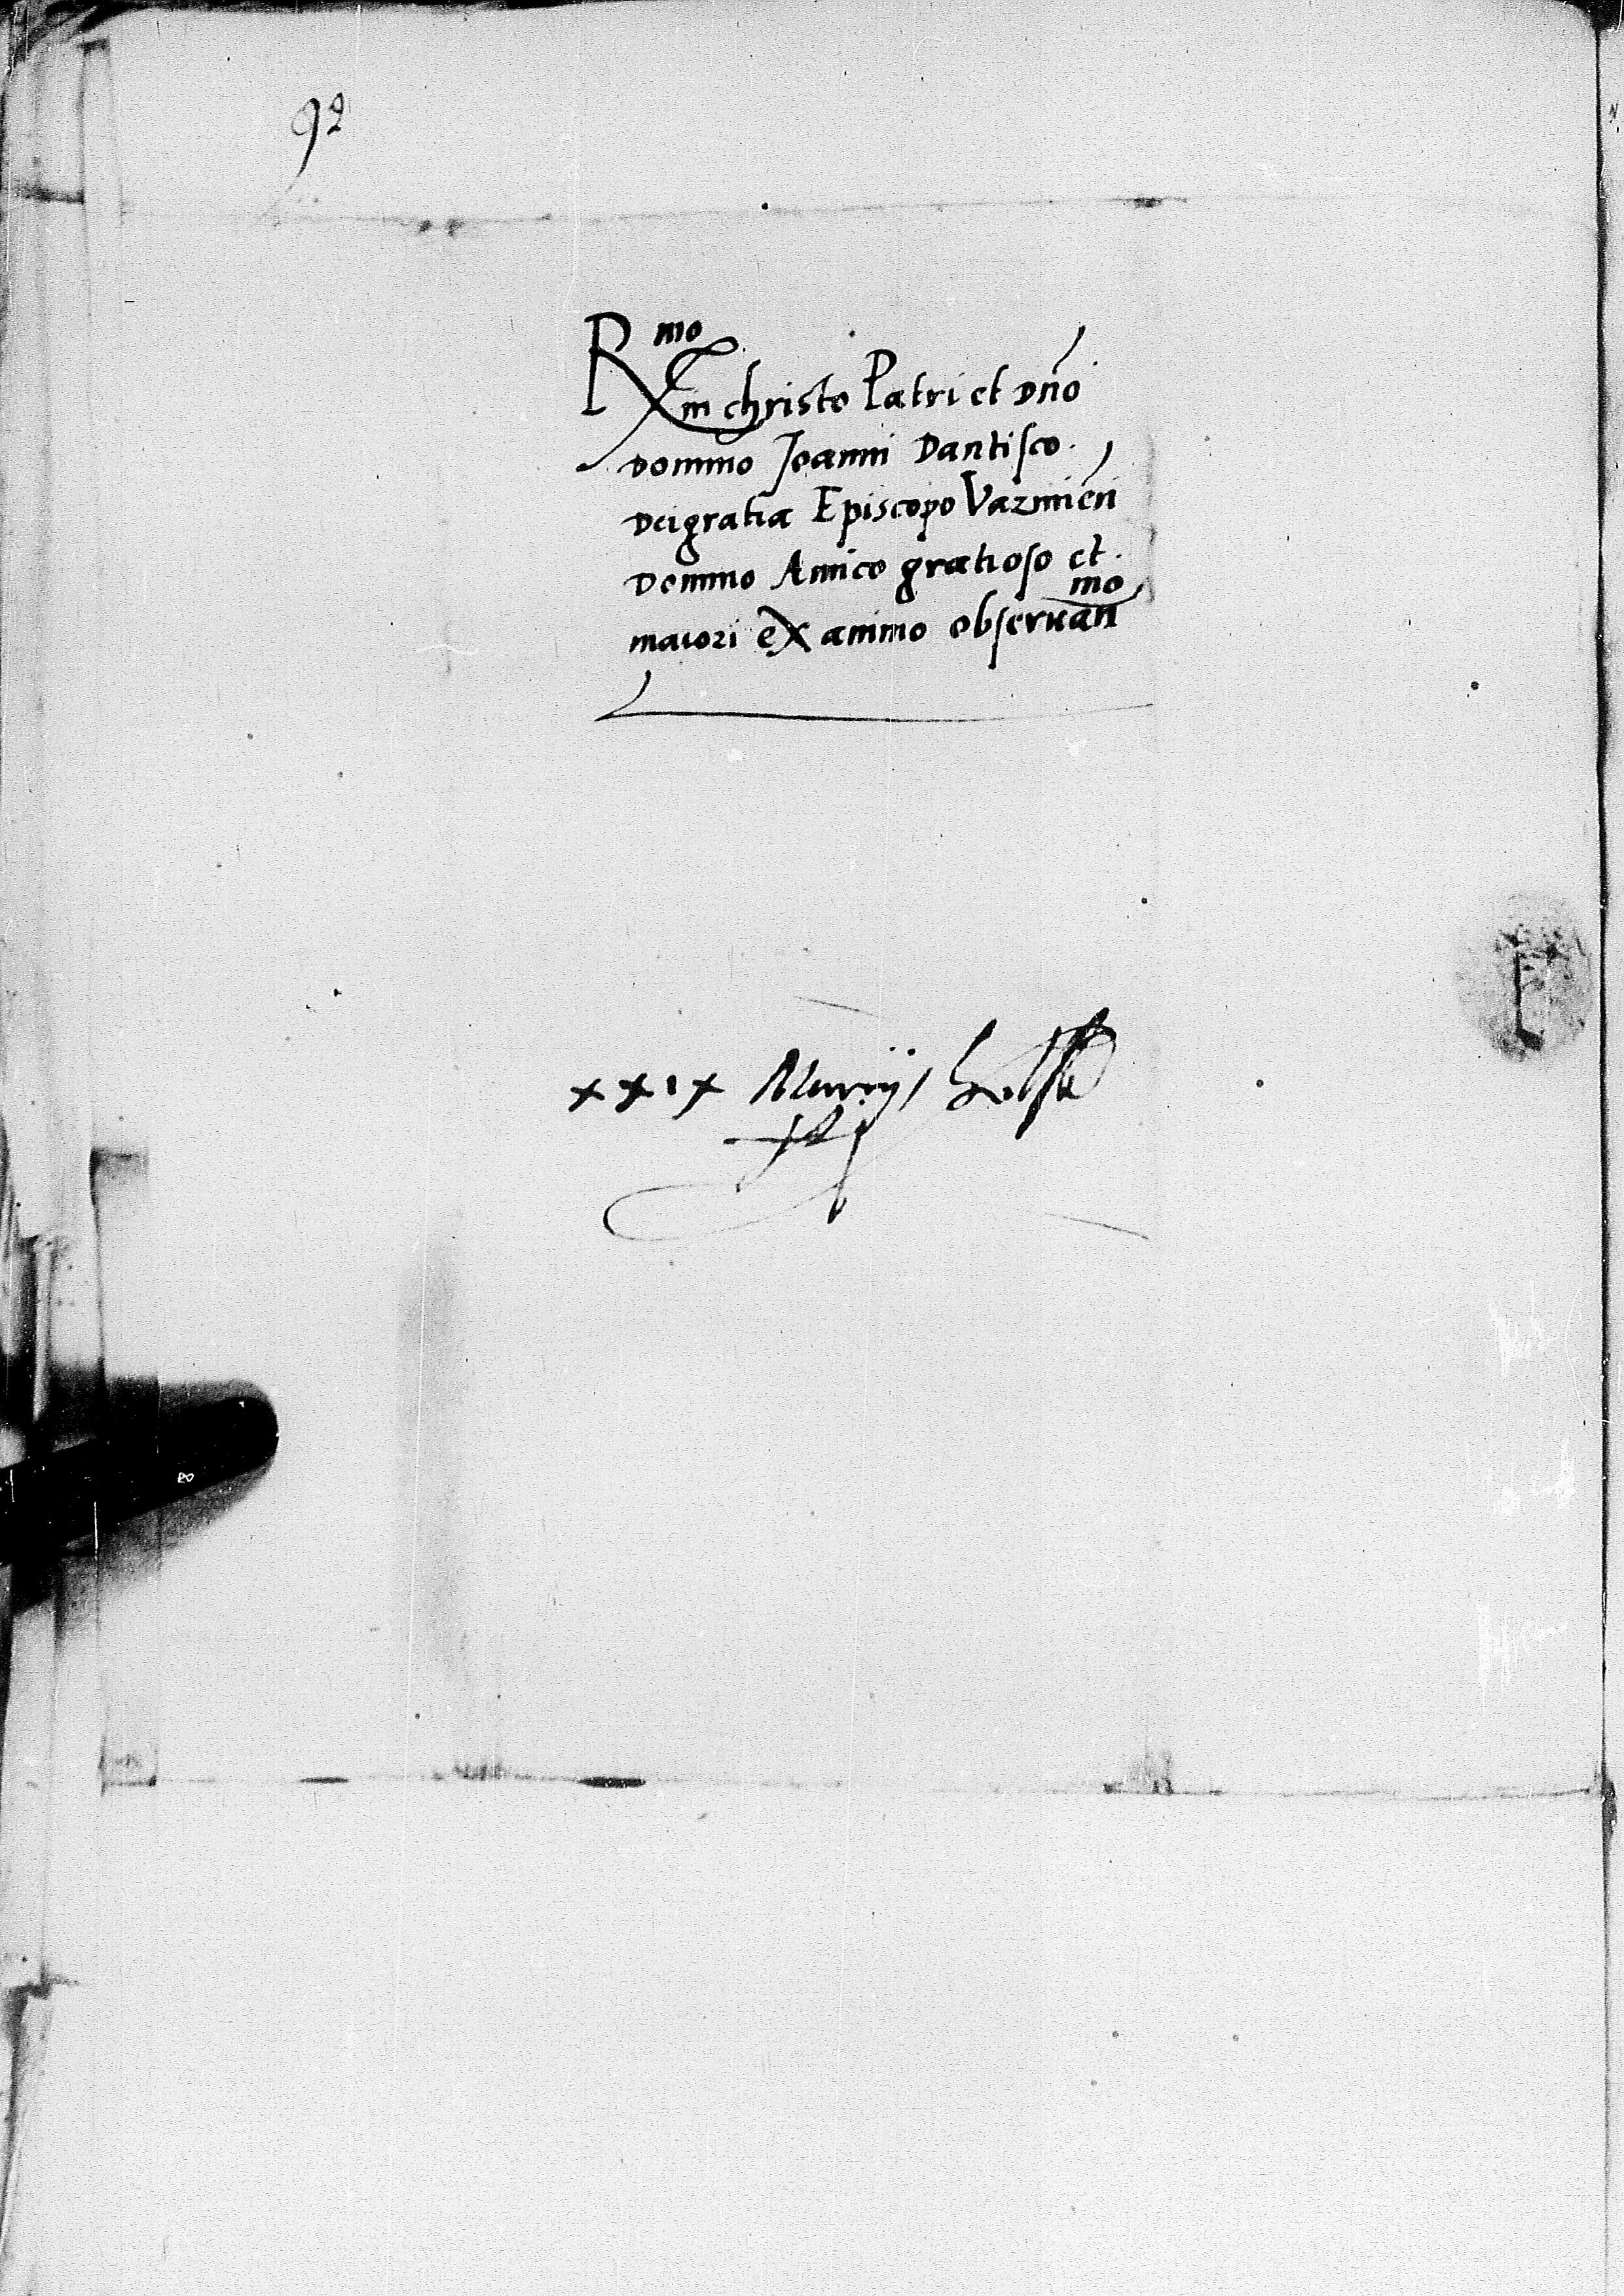 92
Rmo in christo Patri et Dño
Domino Joanni Dantisco.
Dei gratia Episcopo Vazmień
Domino Amico gratioso et.
maiori ex animo obseruanmo
xxix